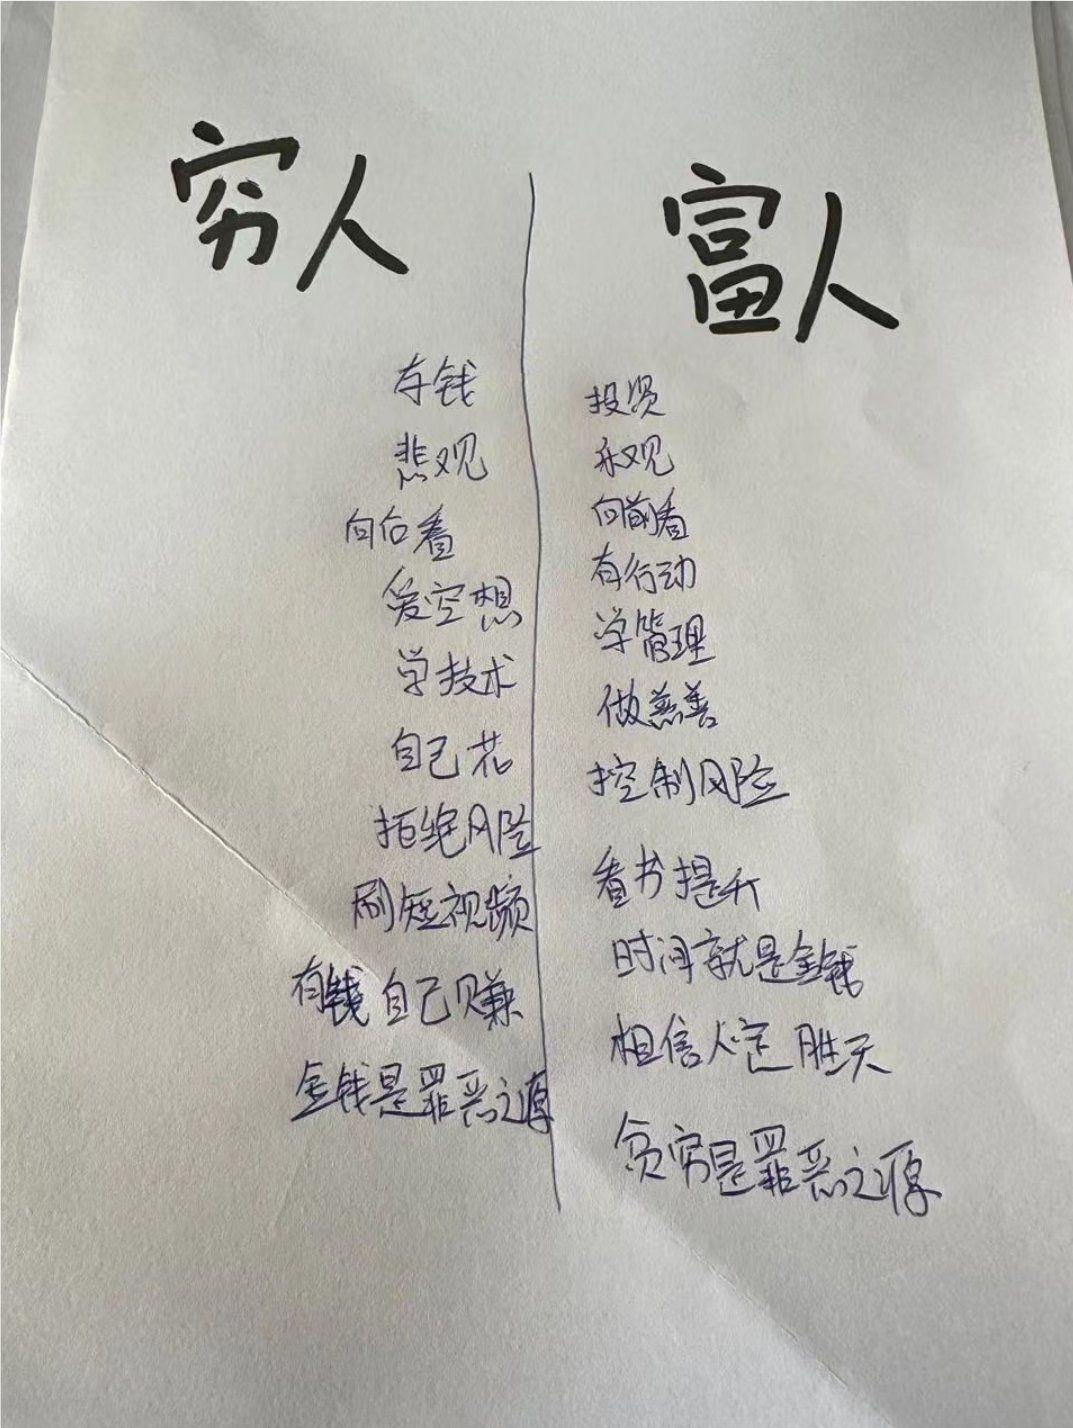 穷人
存钱
悲观
向后看
爱空想
学技术
自己花
拒绝风险
刷短视频
有钱自己赚
金钱是罪恶之源
富人
投资
乐观
向前看
有行动
学管理
做慈善
控制风险
看书提升
时间就是金钱
相信人定胜天
贫穷是罪恶之源